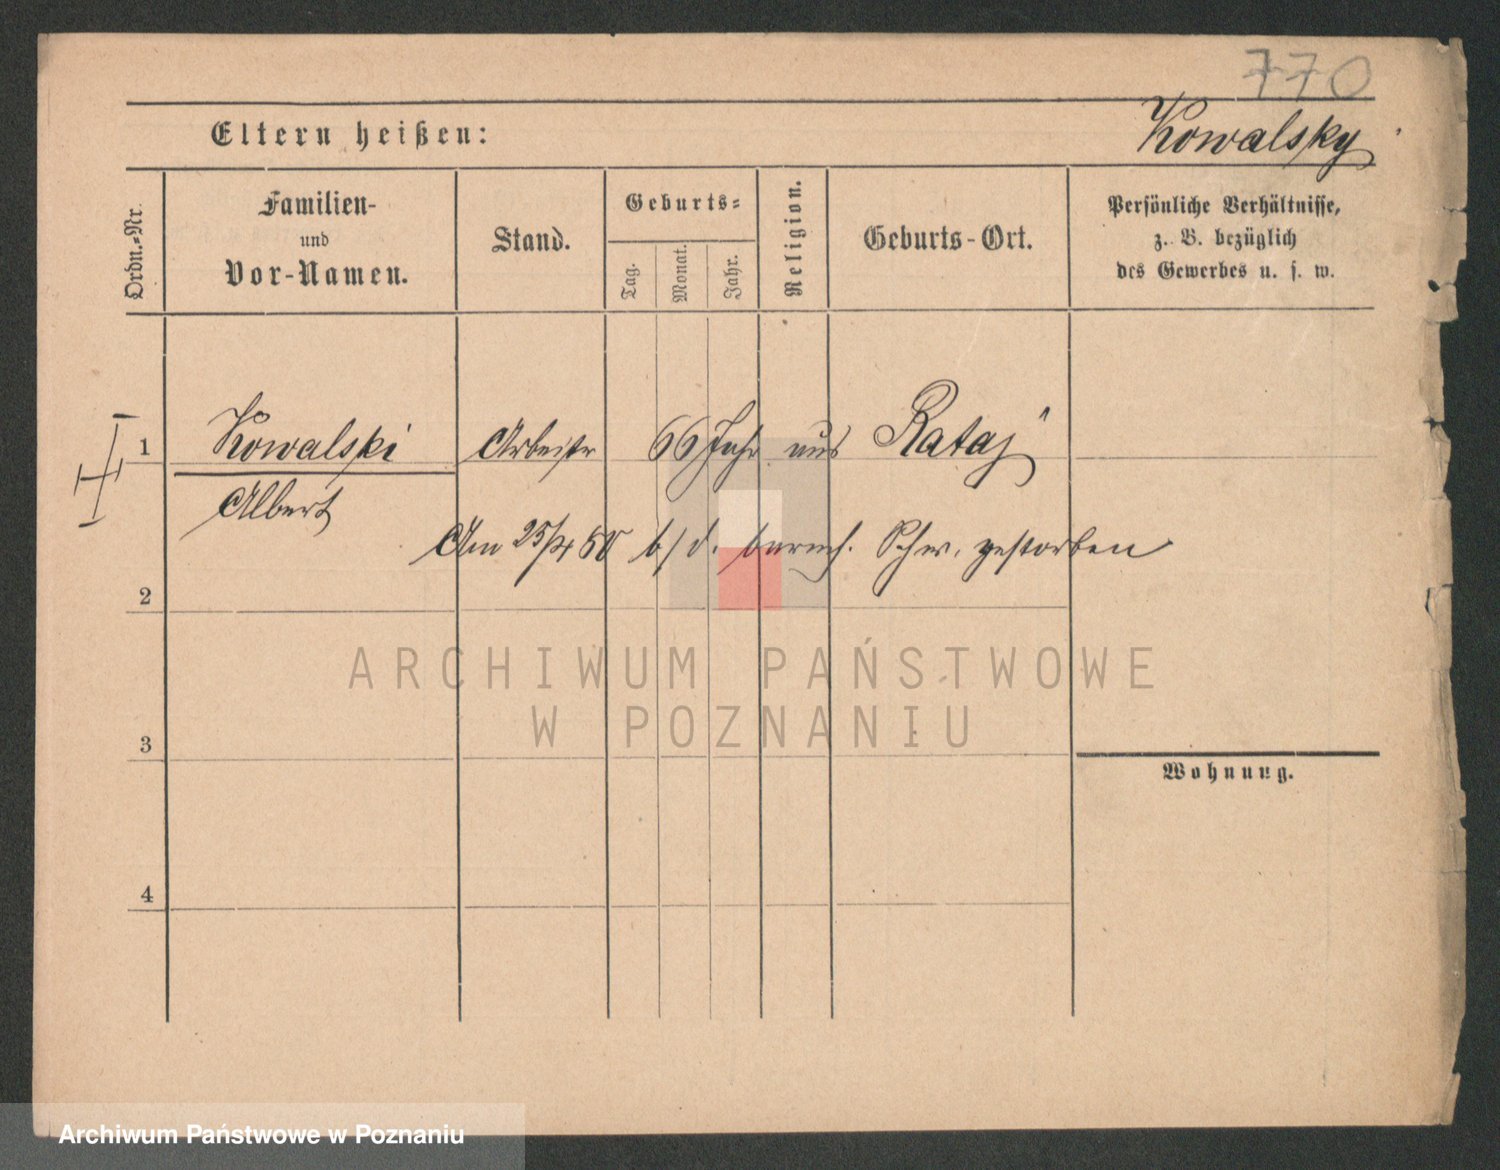 770
Kowalsky
Eltern heißen:
Ordn.-Nr.
Familien-
und
Vor-Namen.
Stand.
Geburts-
Tag.
Monat.
Jahr.
Religion.
Geburts-Ort.
Persönliche Verhältnisse,
z. B. bezüglich
des Gewerbes u. s. w.
1 Kowalski Arbeiter 66 Jahr aus Rataj
Albert
Am 25/4 b/d. barmh. Schw. gestorben
2
3
4
Wohnung.
ARCHIWUM PAŃSTWOWE
W POZNANIU
Archiwum Państwowe w Poznaniu